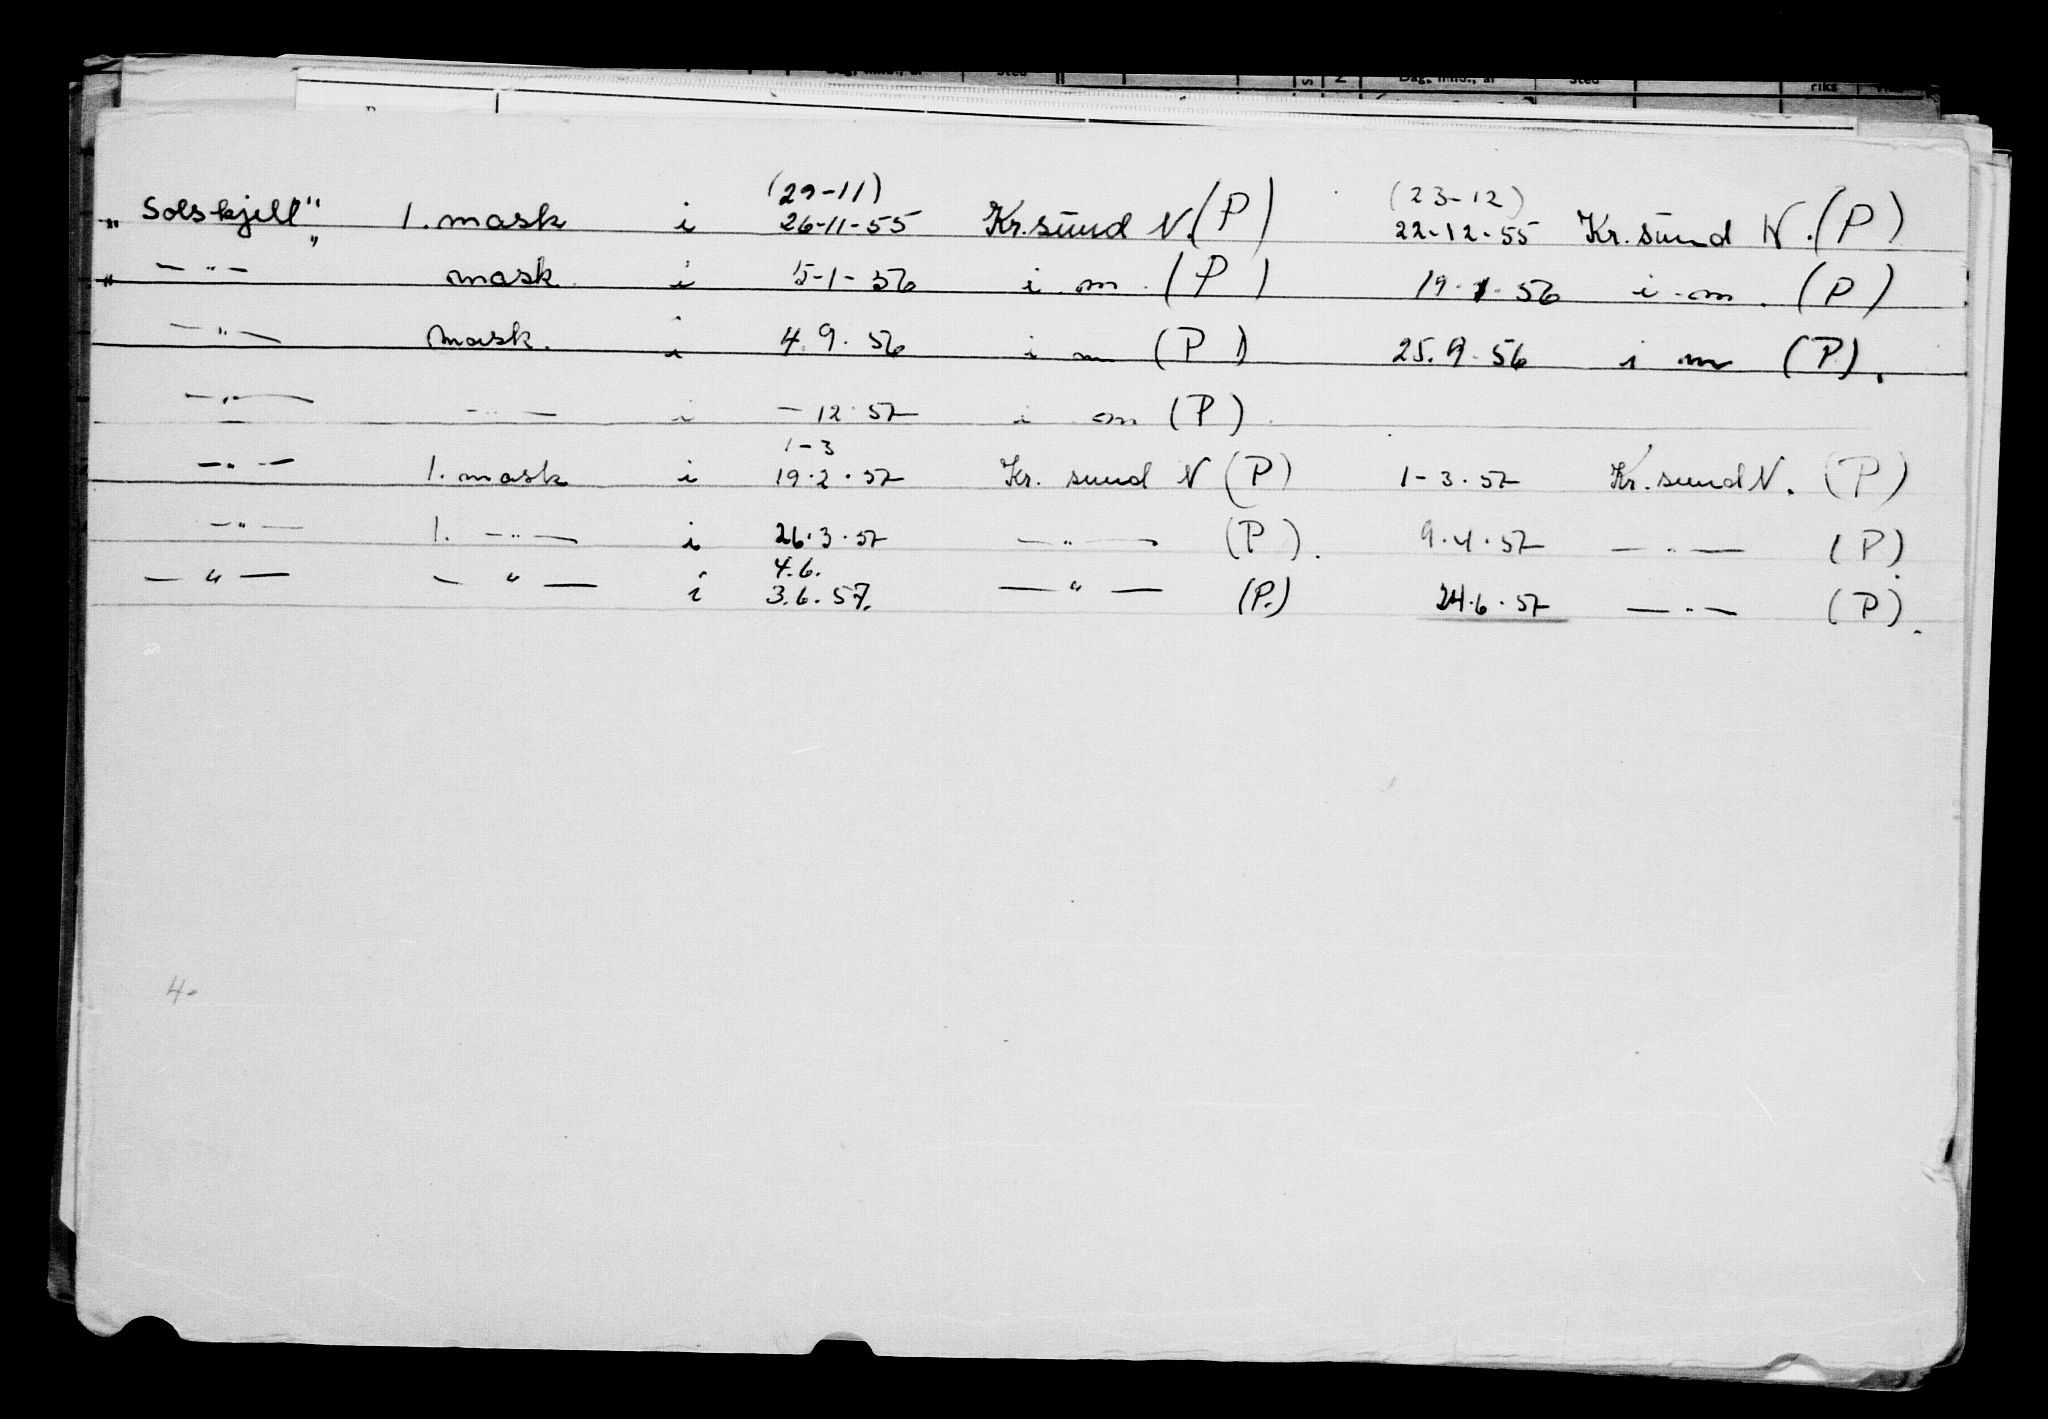 Dag, mnd., år Sted S N Dag, mnd., år Sted riks
(29-11) (23-12)
"Solskjell" 1. mask i 26-11-55 Kr.sund N. (P) 22-12-55 Kr. sund N. (P)
" — " — mask i 5-1-56 i m. (P) 19.1.56 i m. (P)
— " — mask. i 4.9.56 i m (P) 25.9.56 i m (P).
— " — — " — i — 12.57 i m (P)
1-3
— " — 1. mask i 19.2.57 Kr. sund N (P) 1-3.57 Kr. sund N. (P)
— " — 1. — " — i 26.3.57 — " — (P). 9.4.57 — " — (P)
4.6.
— " — — " — i 3.6.57. — " — (P.) 24.6.57 — " — (P).
4-